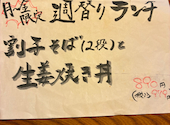 月~金限定 週替りランチ
割子そば(2段)と
生姜焼き丼
890円